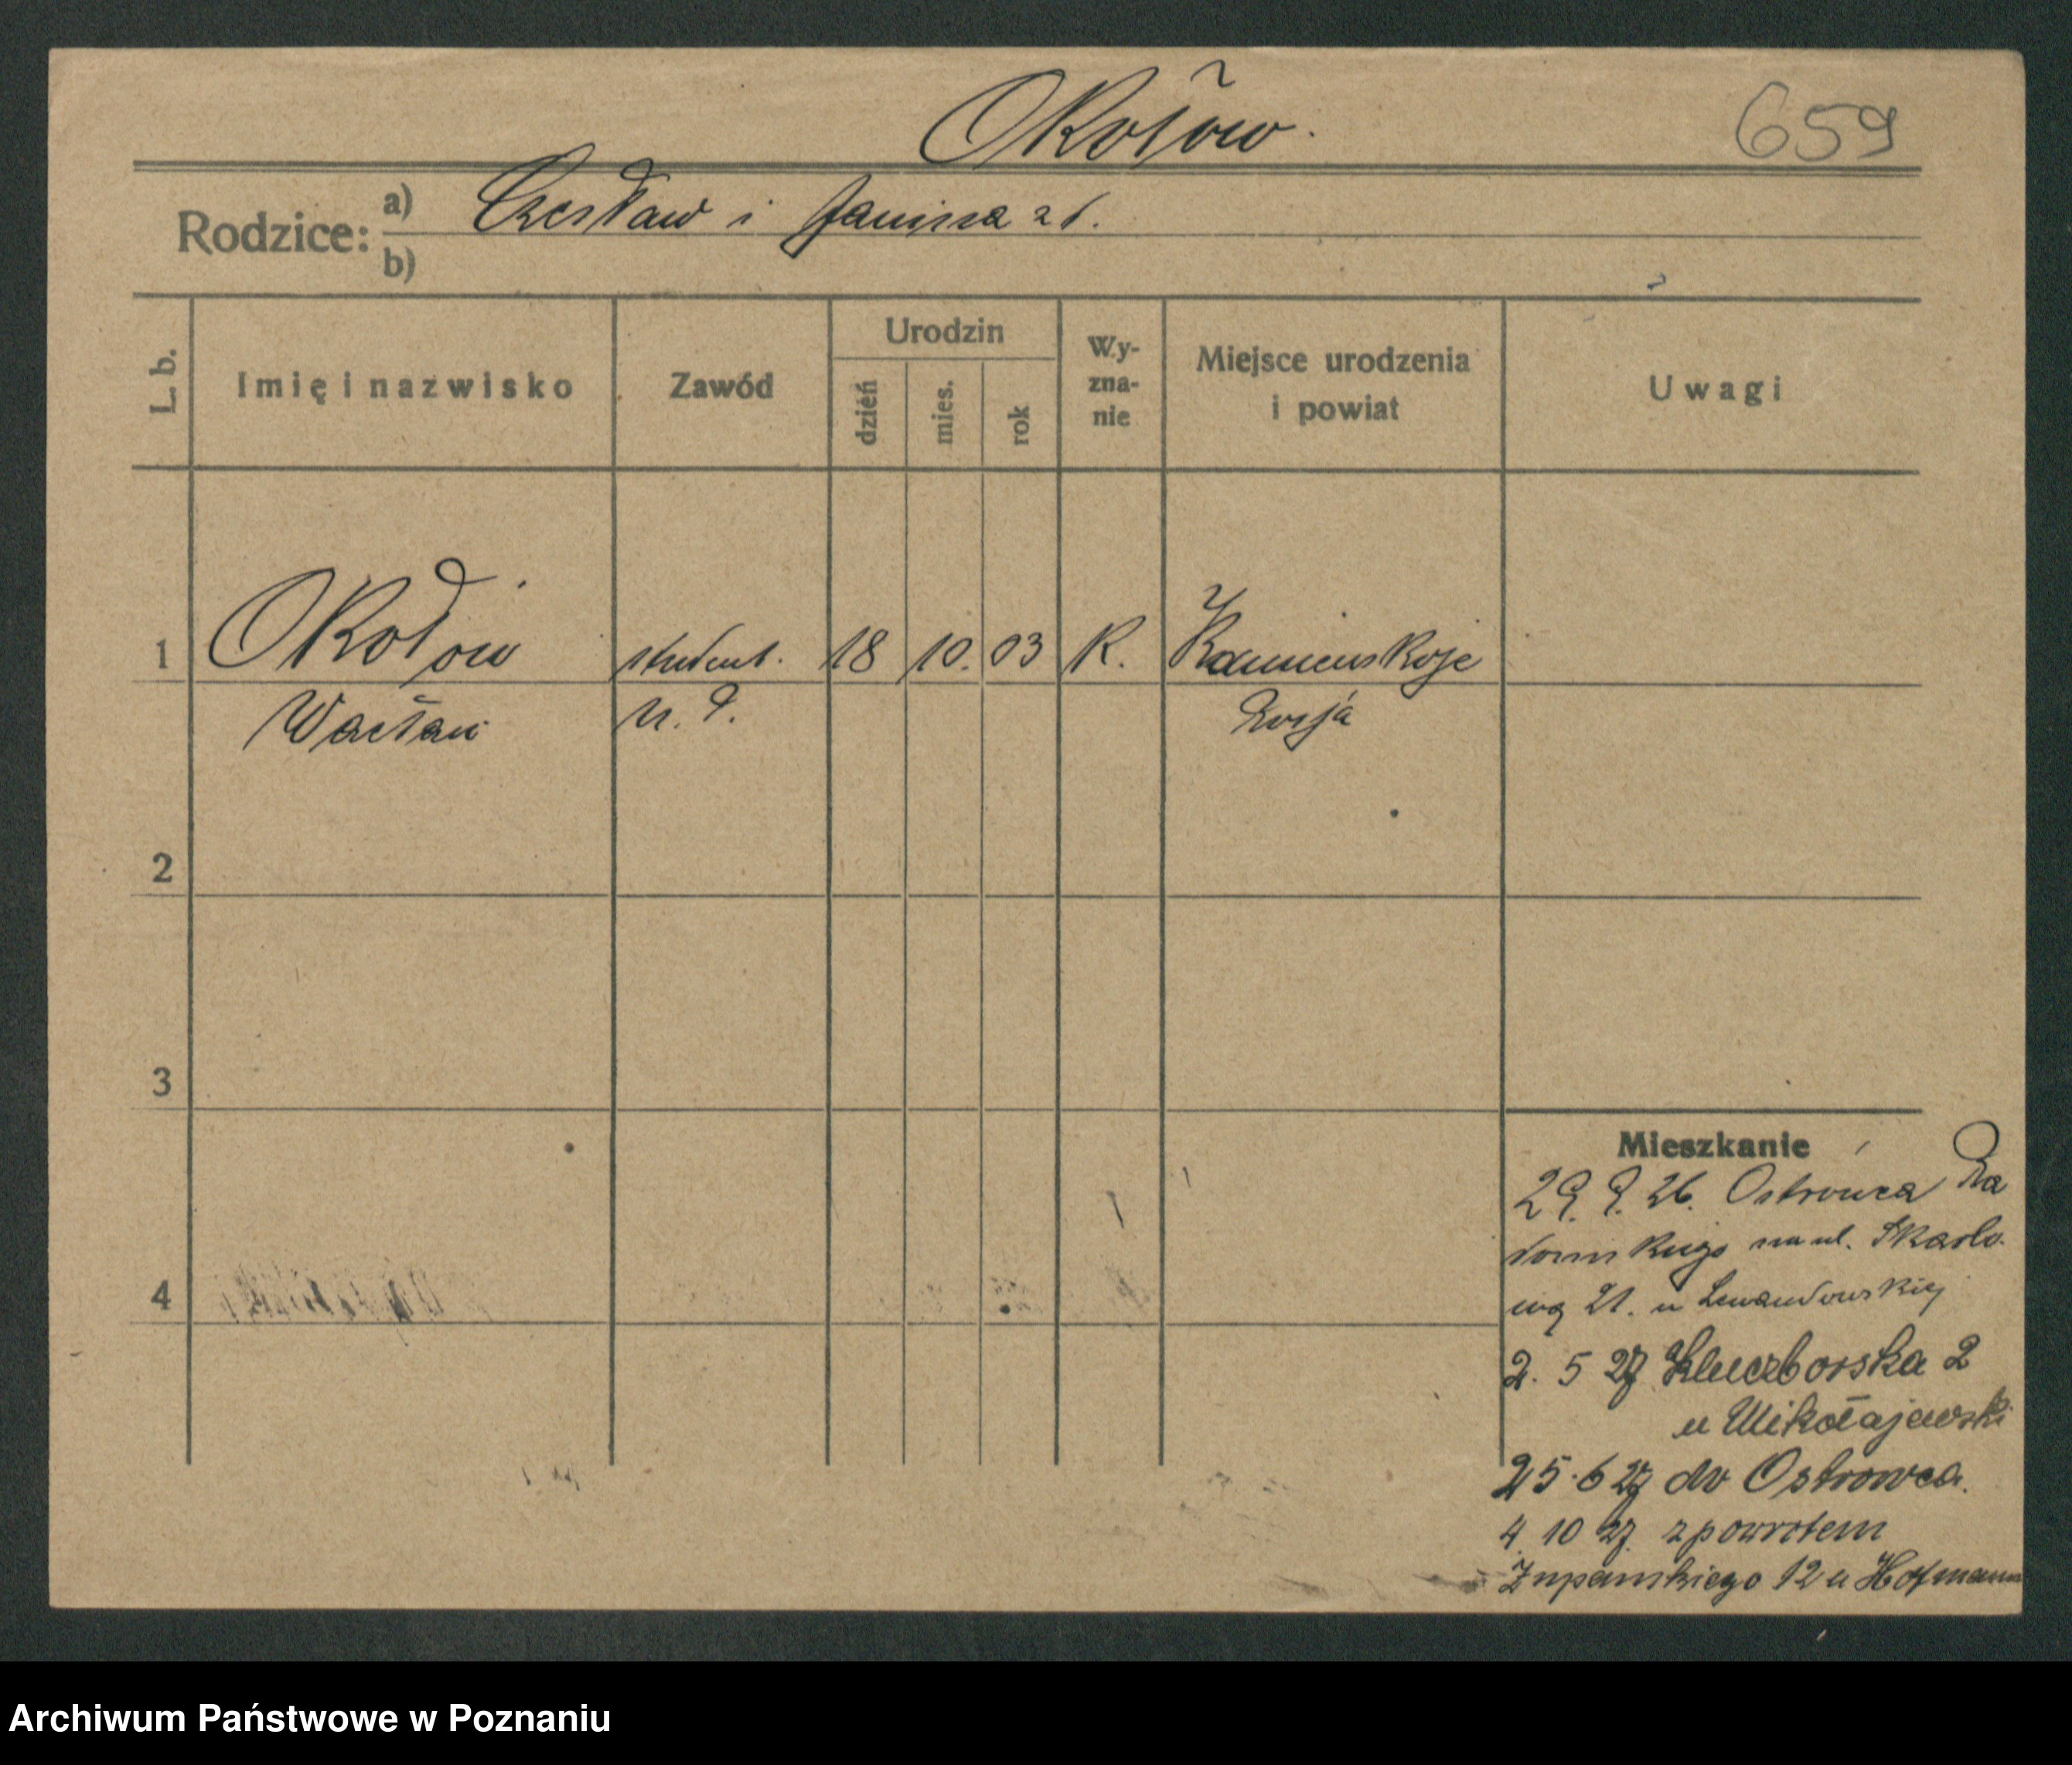 Okołów.
659
Rodzice: a) Czesław i Janina z d.
b)
L. b.
Imię i nazwisko
Zawód
Urodzin
dzień
mies.
rok
Wy-
zna-
nie
Miejsce urodzenia
i powiat
Uwagi
1 Okołów student. 18 10. 03 K. Kamienskoje
Wacław U. P. Rosja
2
3
4
Mieszkanie
29. 9. 26. Ostrowca Ra
domskiego na ul. Skarbo
wą 21. u Lewandowskiej
2. 5 27 Kluczborska 2
u Mikołajewski
25. 6 27 do Ostrowca.
4. 10 27. z powrotem
Żupańskiego 12 u Hofmann
Archiwum Państwowe w Poznaniu